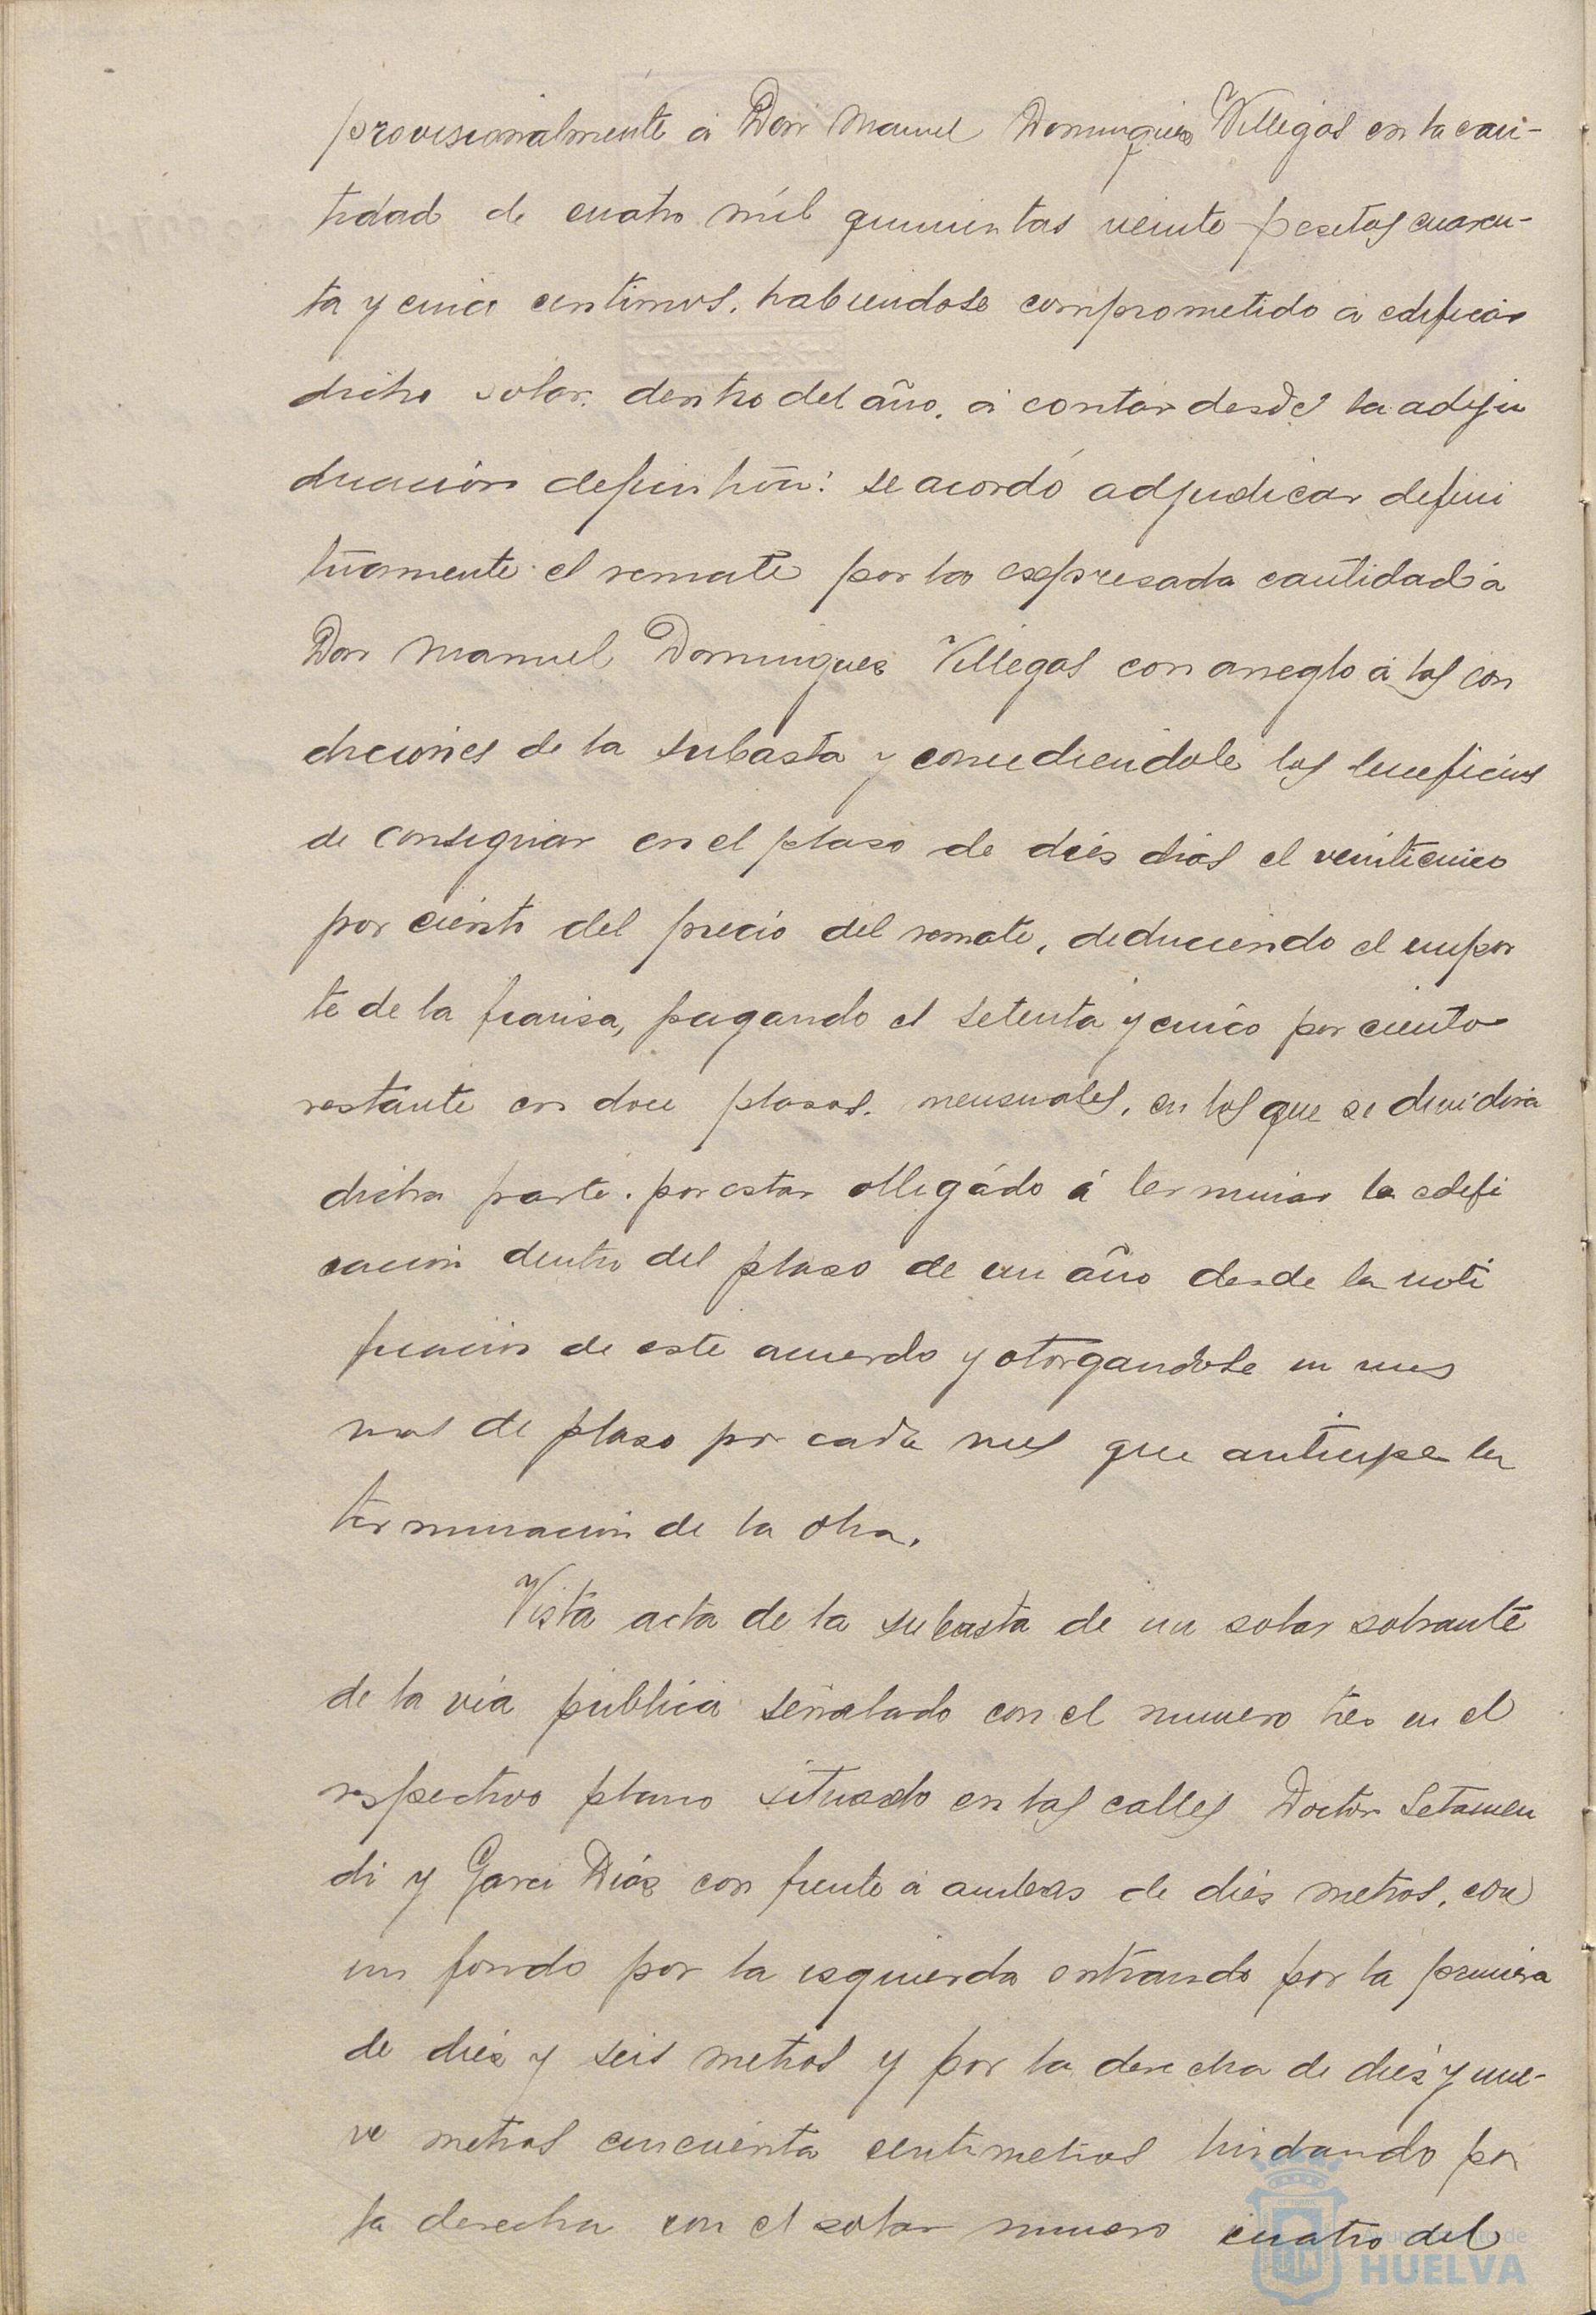 provisionalmente á Don Manuel Dominguez Villegas en la can-
tidad de cuatro mil quinientas veinte pesetas cuaren-
ta y cinco centimos, habiendose comprometido á edificar
dicho solar, dentro del año, á contar desde la adju
dicación definitiva: se acordó adjudicar defini
tivamente el remate por la expresada cantidad á
Don Manuel Dominguez Villegas con arreglo á las con
diciones de la subasta y concediendole los beneficios
de consignar en el plaso de diés dias el veinticinco
por ciento del precio del remate, deduciendo el impor
te de la fianza, pagando el setenta y cinco por ciento
restante en doce plasos mensuales, en los que se dividirá
dicha parte, por estar obligádo á terminar la edifi
cación dentro del plaso de un año desde la noti
ficación de este acuerdo y otorgandole un mes
mas de plaso por cada mes que anticipe la
terminación de la obra.
Vista acta de la subasta de un solar sobrante
de la vía pública señalado con el numero tres en el
respectivo plano situado en las calles Doctor Letamen
di y Garci Diáz con frente á ambas de diés metros, con
un fondo por la izquierda entrando por la primera
de diéz y seis metros y por la derecha de diéz y nue-
ve metros cincuenta centimetros lindando por
la derecha con el solar numero cuatro del
Ayuntamiento de
HUELVA